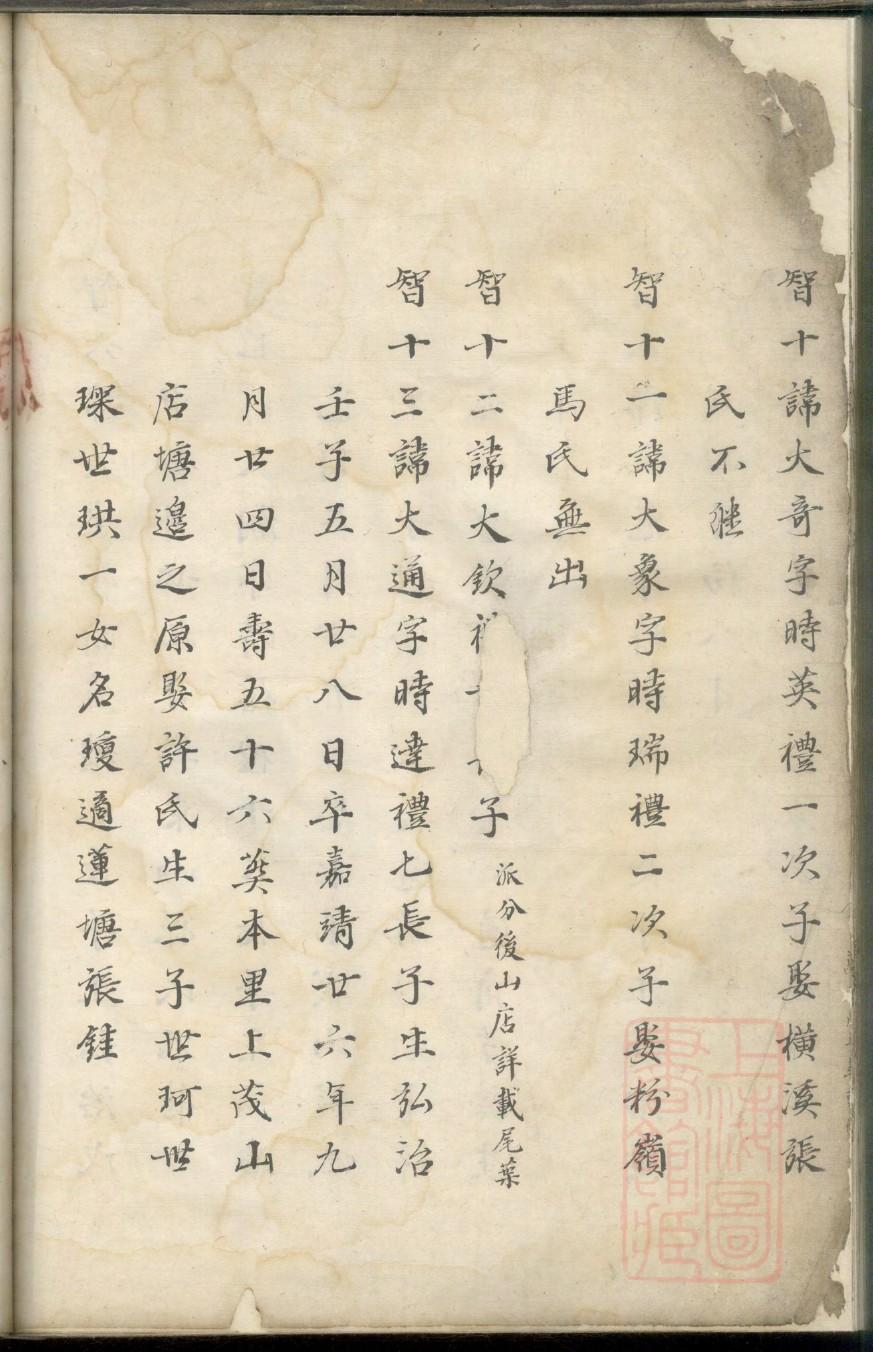 智十諱大奇字時英禮一次子娶橫溪張
氏不継
智十一諱大象字時瑞禮二次子娶粉嶺
馬氏無出
智十二諱大欽 子派分後山店詳載尾葉
智十三諱大通字時達禮七長子生弘治
壬子五月廿八日卒嘉靖廿六年九
月廿四日壽五十六葵本里上茂山
店塘邉之原娶許氏生三子世珂世
琛世珙一女名瓊適蓮塘張鋕
上海圖書館藏